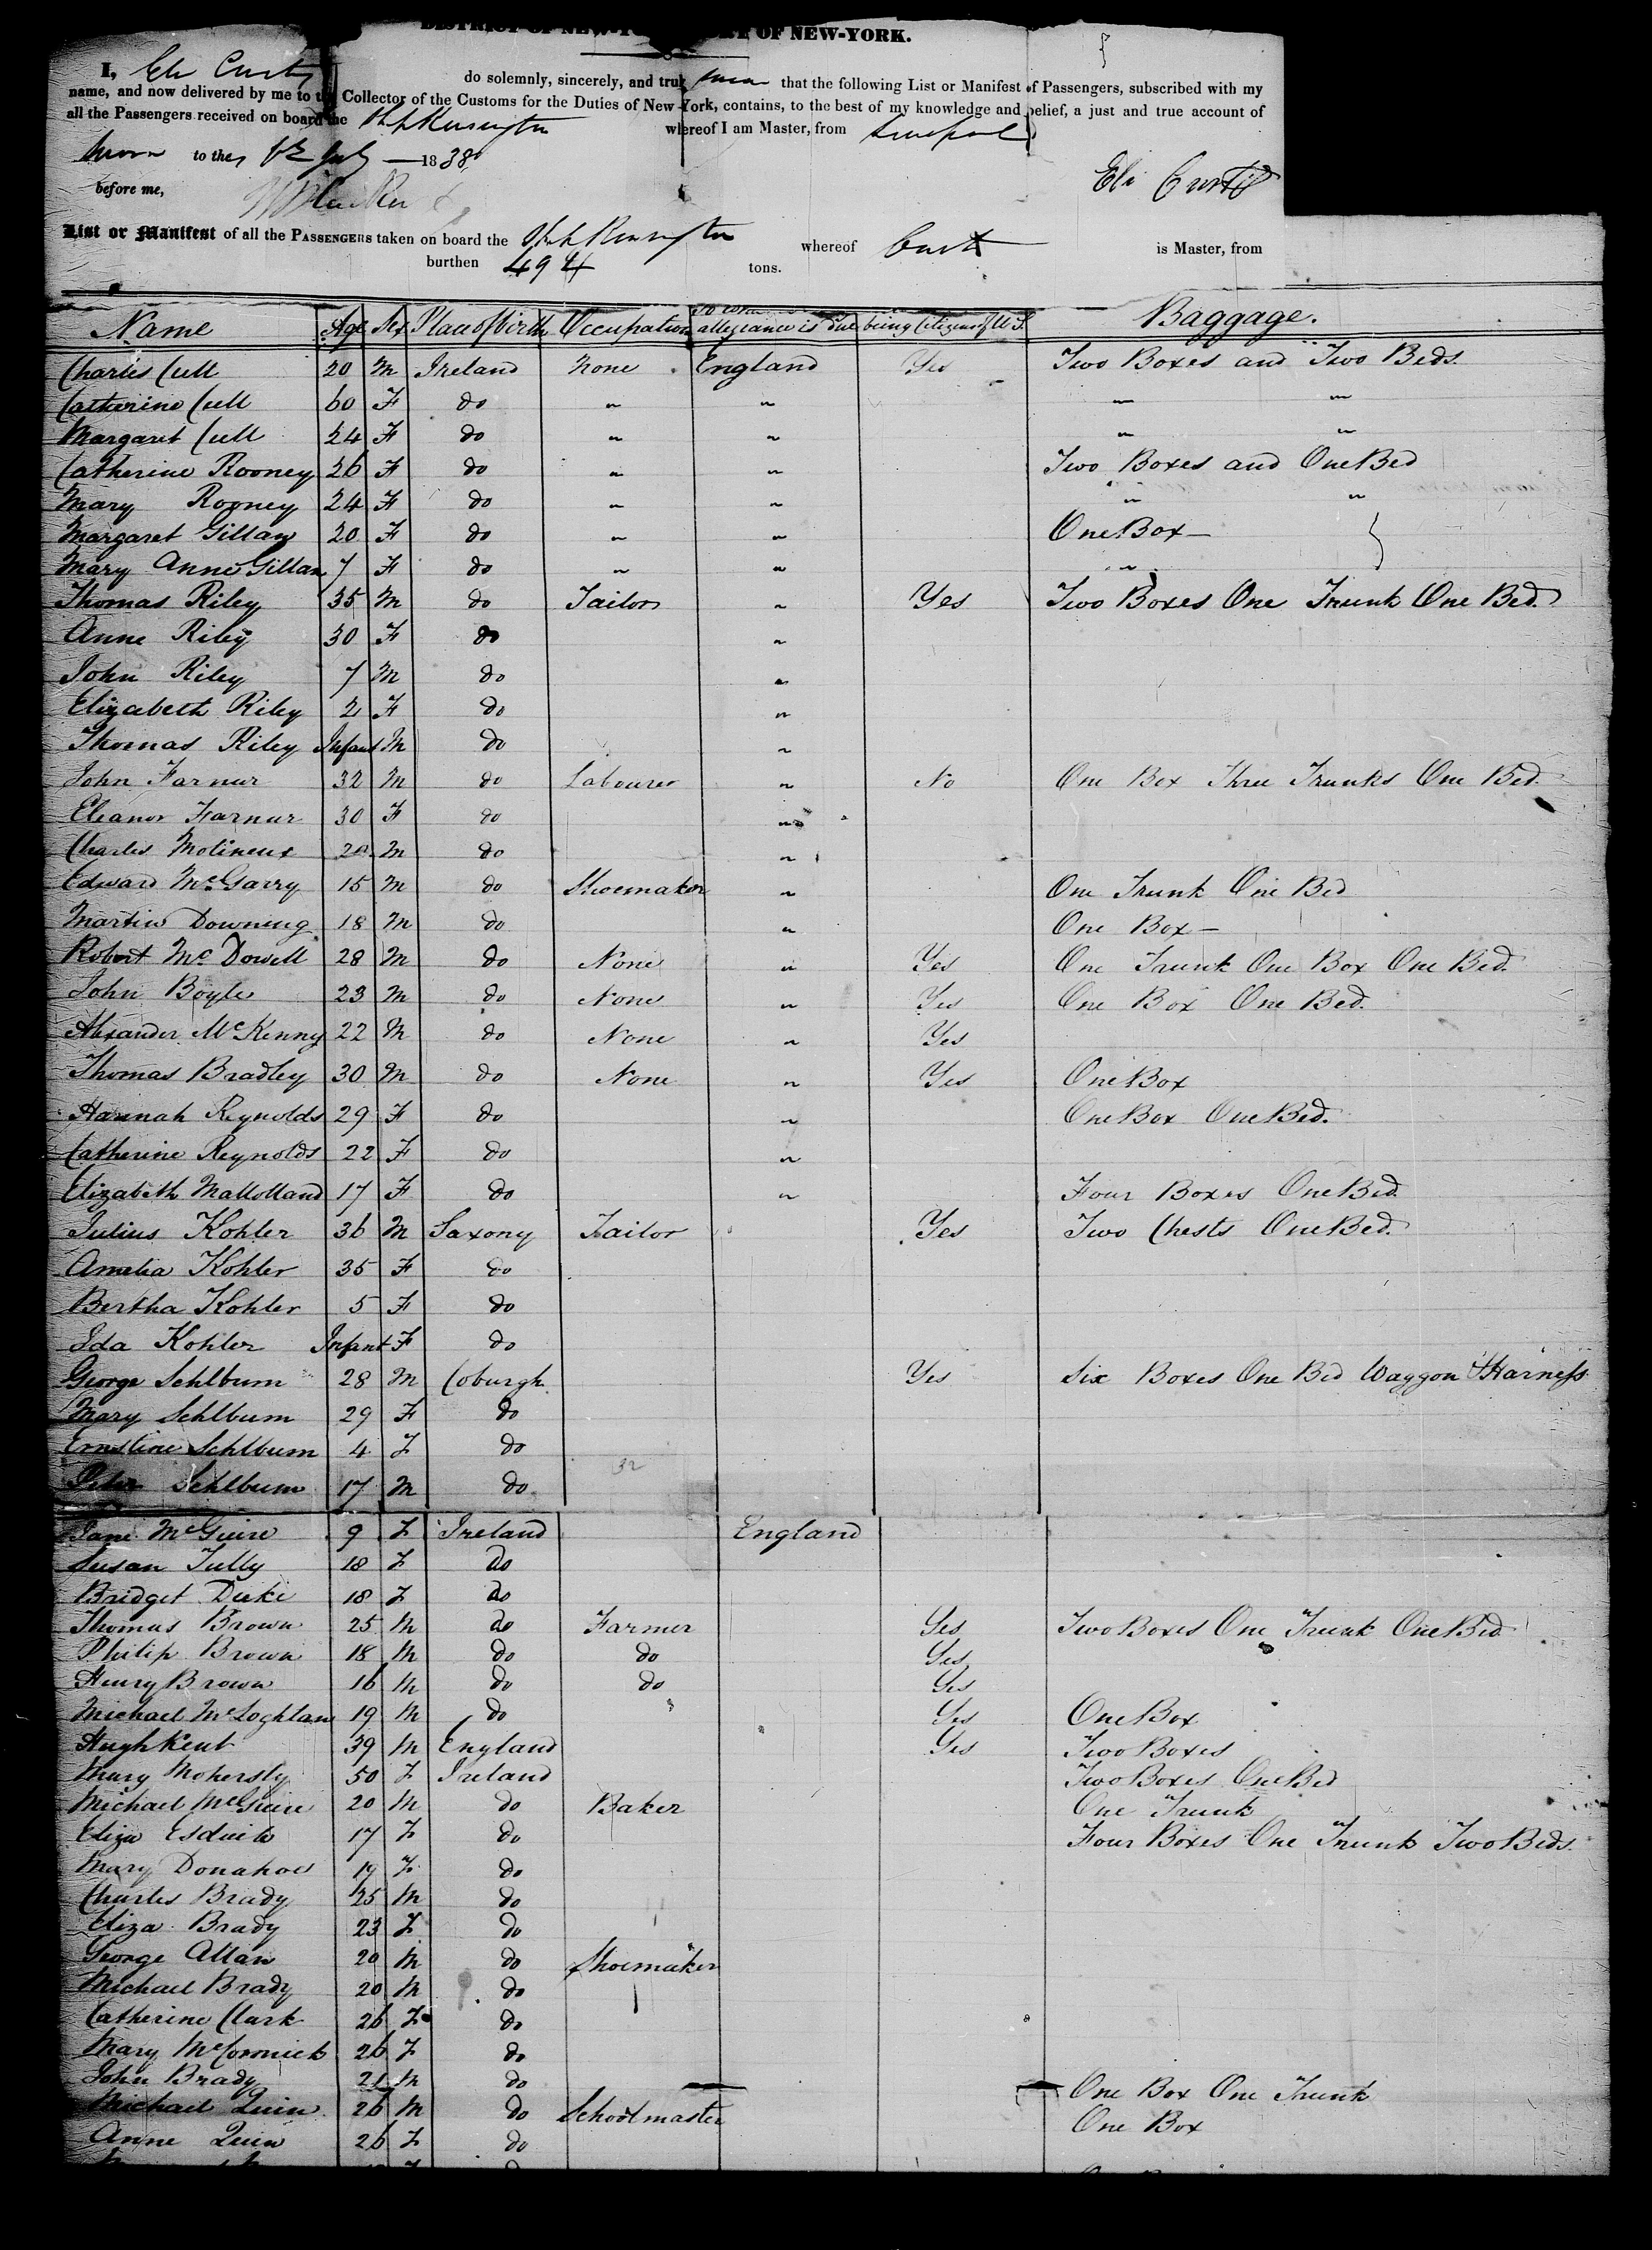 DISTRICT OF NEW-YORK OF NEW-YORK.
I, Eli Curtis do solemnly, sincerely, and truly swear that the following List or Manifest of Passengers, subscribed with my
name, and now delivered by me to the Collector of the Customs for the Duties of New-York, contains, to the best of my knowledge and belief, a just and true account of
all the Passengers received on board the Ship Kensington whereof I am Master, from Liverpool
Sworn to the July 1838
before me, Eli Curtis
List or Manifest of all the PASSENGERS taken on board the Ship Kensington whereof Curtis is Master, from
burthen 494 tons.
Name Age Sex Place of birth Occupation allegiance is due being Citizens of U S. Baggage.
Charles Cull 20 M Ireland None England Yes Two Boxes and Two Beds.
Catherine Cull 60 F do " " " "
Margaret Cull 24 F do " " " "
Catherine Rooney 26 F do " " Two Boxes and One Bed
Mary Rooney 24 F do " " " "
Margaret Gillan 20 F do " " One Box
Mary Anne Gillan 7 F do " " "
Thomas Riley 35 M do Tailor " Yes Two Boxes One Trunk One Bed.
Anne Riley 30 F do "
John Riley 7 M do "
Elizabeth Riley 2 F do "
Thomas Riley Infant M do "
John Farnur 32 M do Labourer " No One Box Three Trunks One Bed.
Eleanor Farnur 30 F do "
Charles Molineux 20 M do "
Edward McGarry 15 M do Shoemaker " One Trunk One Bed
Martin Downing 18 M do " One Box
Robert McDowell 28 M do None " Yes One Trunk One Box One Bed.
John Boyle 23 M do None " Yes One Box One Bed.
Alexander McKenny 22 M do None " Yes
Thomas Bradley 30 M do None " Yes One Box
Hannah Reynolds 29 F do " One Box One Bed.
Catherine Reynolds 22 F do "
Elizabeth Mallolland 17 F do " Four Boxes One Bed
Julius Kohler 36 M Saxony Tailor Yes Two Chests One Bed.
Amelia Kohler 35 F do
Bertha Kohler 5 F do
Ida Kohler Infant F do
George Sehlbum 28 M Coburgh Yes Six Boxes One Bed Waggon & Harness
Mary Sehlbum 29 F do
Ernstine Sehlbum 4 F do
Peter Sehlbum 17 M do 32
Jane McGuire 9 F Ireland England
Susan Tully 18 F do
Bridget Duke 18 F do
Thomas Brown 25 M do Farmer Yes Two Boxes One Trunk One Bed
Philip Brown 18 M do do Yes
Henry Brown 16 M do do Yes
Michael McLoghlan 19 M do Yes One Box
Hugh Kent 39 M England Yes Two Boxes
Mary 50 F Ireland Two Boxes One Bed
Michael McGuire 20 M do Baker One Trunk
Eliza 17 F do Four Boxes One Trunk Two Beds.
Mary Donahoe 19 F do
Charles Brady 25 M do
Eliza Brady 23 F do
George Allan 20 M do Shoemaker
Michael Brady 20 M do
Catherine Clark 26 F do
Mary McCormick 26 F do
John Brady 21 M do One Box One Trunk
Michael Quin 26 M do Schoolmaster One Box
Anne Quin 26 F do